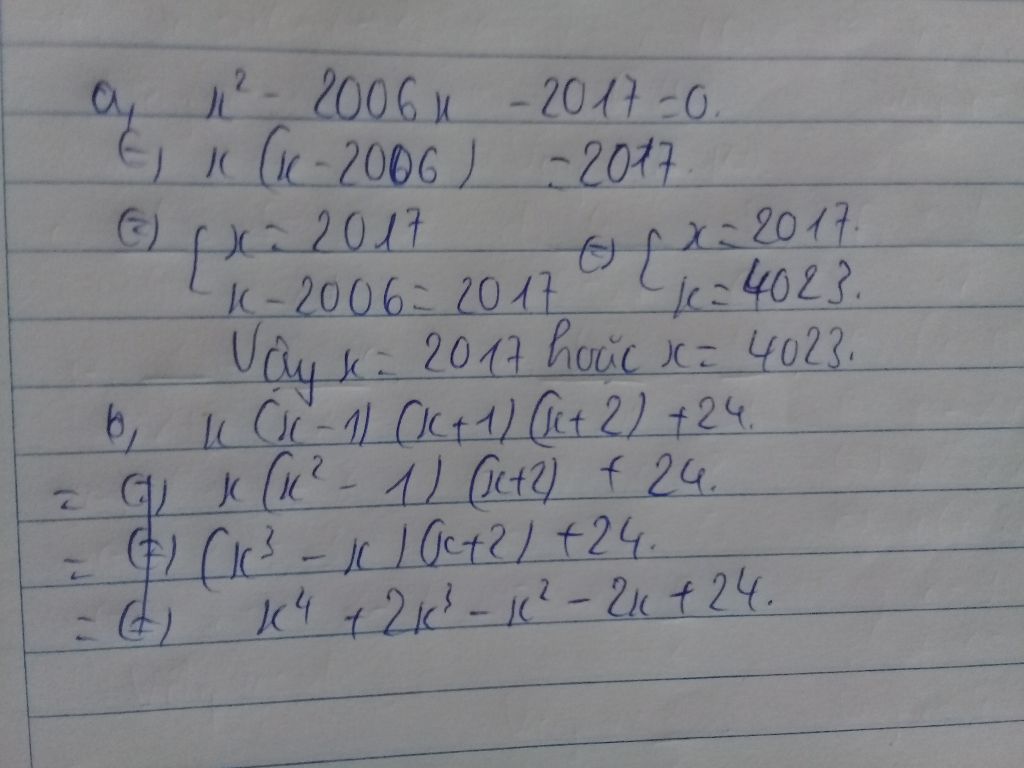 a, x² - 2006x - 2017 = 0.
(=) x (x - 2006) = 2017.
(=) { x = 2017 (=) { x = 2017.
x - 2006 = 2017 x = 4023.
Vậy x = 2017 hoặc x = 4023.
b, x (x - 1) (x + 1) (x + 2) + 24.
= (=) x (x² - 1) (x+2) + 24.
= (=) (x³ - x) (x+2) + 24.
= (=) x⁴ + 2x³ - x² - 2x + 24.